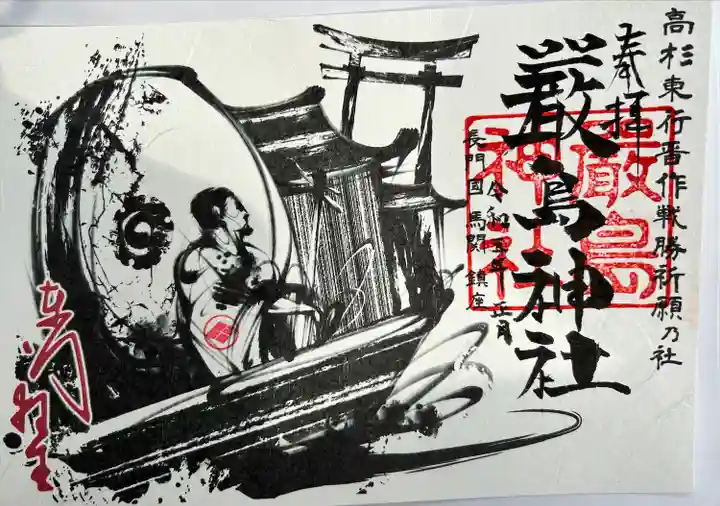 高杉東行晋作戦勝祈願乃社
奉拝
厳島神社
厳島神社
長門國馬関鎮座
令和五年正月